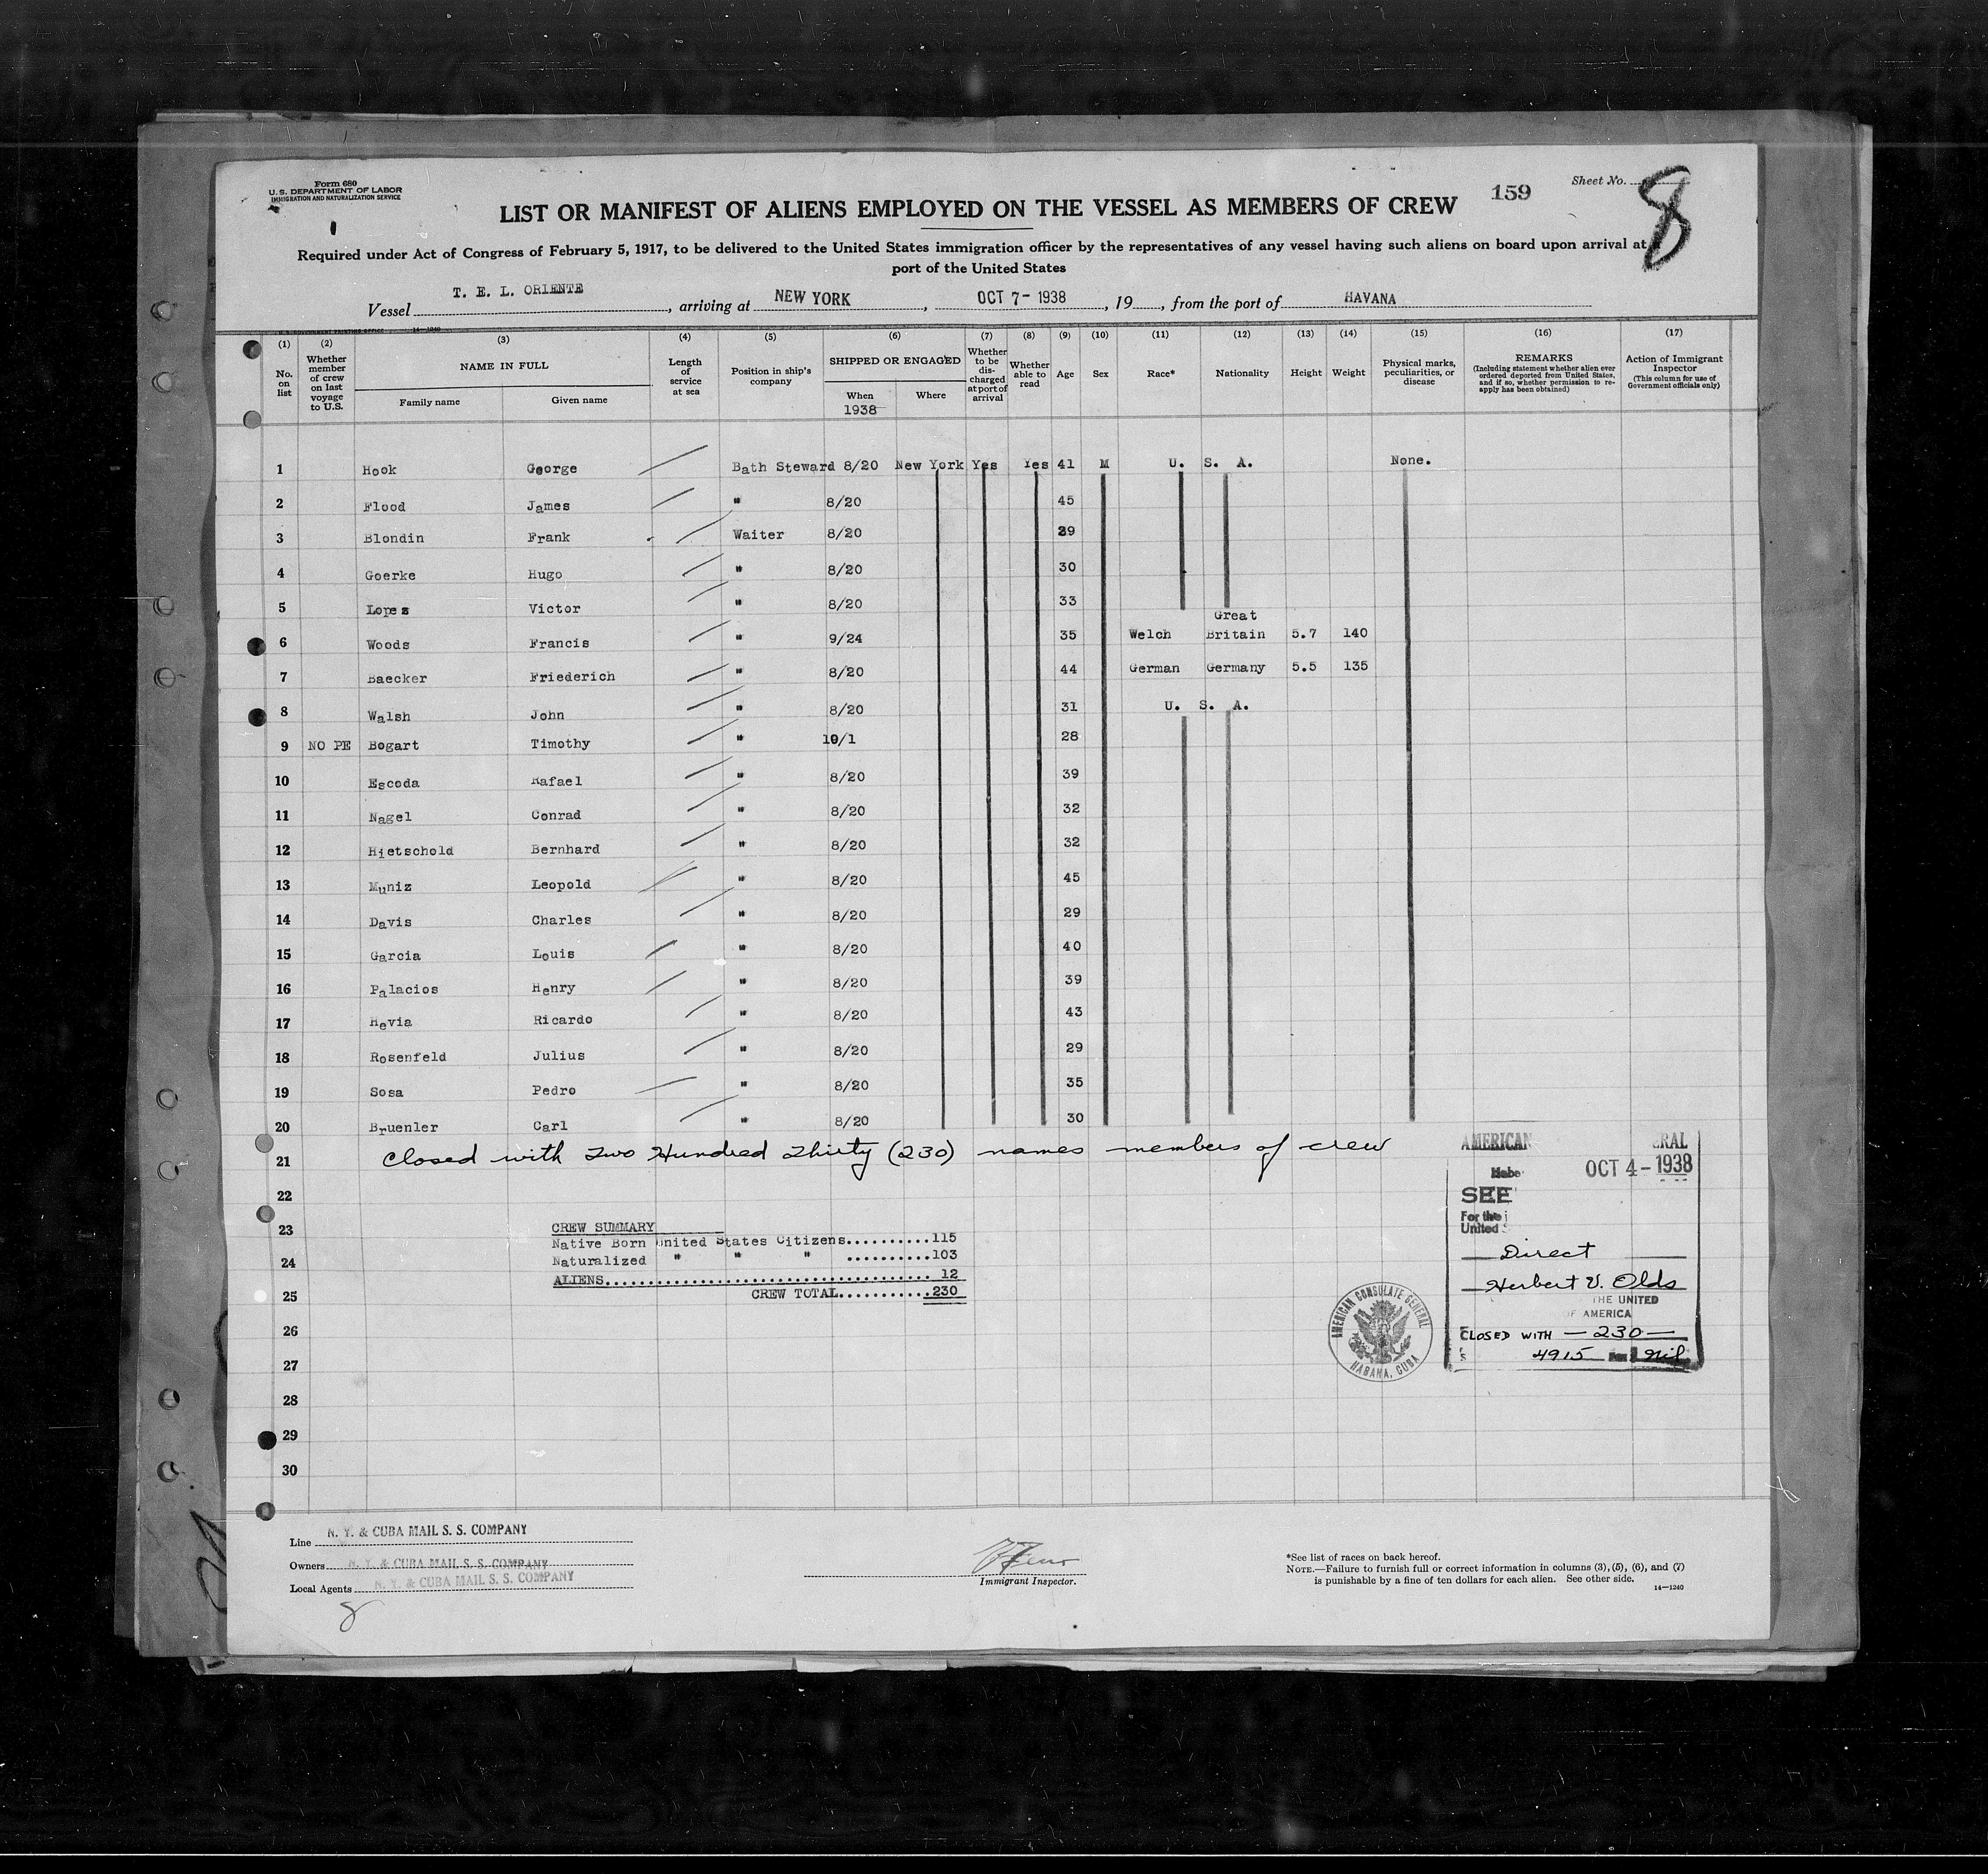 Form 680
U. S. DEPARTMENT OF LABOR
IMMIGRATION AND NATURALIZATION SERVICE
159
Sheet No. 8
LIST OR MANIFEST OF ALIENS EMPLOYED ON THE VESSEL AS MEMBERS OF CREW
Required under Act of Congress of February 5, 1917, to be delivered to the United States immigration officer by the representatives of any vessel having such aliens on board upon arrival at a
port of the United States
Vessel T. E. L. ORIENTE, arriving at NEW YORK, OCT 7 - 1938, 19, from the port of HAVANA
14-1240
(1) (2) (3) (4) (5) (6) (7) (8) (9) (10) (11) (12) (13) (14) (15) (16) (17)
No. on list
Whether member of crew on last voyage to U.S.
NAME IN FULL
Family name
Given name
Length of service at sea
Position in ship's company
SHIPPED OR ENGAGED
When
1938
Where
Whether to be discharged at port of arrival
Whether able to read
Age
Sex
Race*
Nationality
Height
Weight
Physical marks, peculiarities, or disease
REMARKS
(Including statement whether alien ever ordered deported from United States, and if so, whether permission to re-apply has been obtained)
Action of Immigrant Inspector
(This column for use of Government officials only)
1 Hook George Bath Steward 8/20 New York Yes Yes 41 M U. S. A. None.
2 Flood James " 8/20 45
3 Blondin Frank Waiter 8/20 29
4 Goerke Hugo " 8/20 30
5 Lopes Victor " 8/20 33
6 Woods Francis " 9/24 35 Welch Great Britain 5.7 140
7 Baecker Friederich " 8/20 44 German Germany 5.5 135
8 Walsh John " 8/20 31 U. S. A.
9 NO PE Bogart Timothy " 10/1 28
10 Escoda Rafael " 8/20 39
11 Nagel Conrad " 8/20 32
12 Hietschold Bernhard " 8/20 32
13 Muniz Leopold " 8/20 45
14 Davis Charles " 8/20 29
15 Garcia Louis " 8/20 40
16 Palacios Henry " 8/20 39
17 Hevia Ricardo " 8/20 43
18 Rosenfeld Julius " 8/20 29
19 Sosa Pedro " 8/20 35
20 Bruenler Carl " 8/20 30
21 Closed with Two Hundred Thirty (230) names members of crew
22
23 CREW SUMMARY
Native Born United States Citizens..........115
24 Naturalized " " " ..........103
ALIENS....................................... 12
25 CREW TOTAL...........230
26
27
28
29
30
AMERICAN ERAL
OCT 4 - 1938
SEE
For the
United
Direct
Herbert V. Olds
THE UNITED
OF AMERICA
CLOSED WITH — 230 —
4915 Nil
AMERICAN CONSULATE GENERAL
HABANA, CUBA
Line N. Y. & CUBA MAIL S. S. COMPANY
Owners N. Y. & CUBA MAIL S. S. COMPANY
Local Agents N. Y. & CUBA MAIL S. S. COMPANY
8
Immigrant Inspector.
*See list of races on back hereof.
NOTE.—Failure to furnish full or correct information in columns (3), (5), (6), and (7)
is punishable by a fine of ten dollars for each alien. See other side.
14—1240